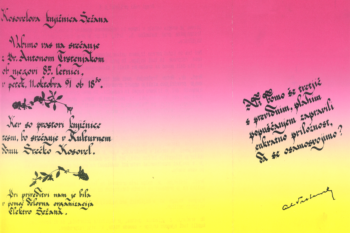 Kosovelova knjižnica Sežana
Vabimo vas na srečanje
z Dr. Antonom Trstenjakom
ob njegovi 85. letnici,
v petek, 11. oktobra 91 ob 18⁰⁰.
Ker so prostori knjižnice
tesni, bo srečanje v Kulturnem
domu Srečko Kosovel.
Pri prireditvi nam je bila
v pomoč delovna organizacija
Elektro Sežana.
Ali bomo še tretjič
s previdnim, plahim
popuščanjem zapravili
enkratno priložnost,
da se osamosvojimo?